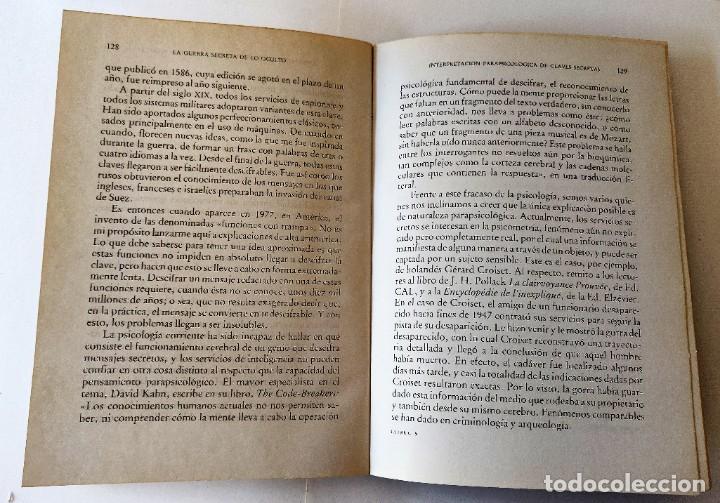 128
LA GUERRA SECRETA DE LO OCULTO
que publicó en 1586, cuya edición se agotó en el plazo de un
año, fue reimpreso al año siguiente.
A partir del siglo XIX, todos los servicios de espionaje y
todos los sistemas militares adoptaron variantes de esta clave.
Han sido aportados algunos perfeccionamientos clásicos,
sados principalmente en el uso de máquinas. De cuando en
cuando, florecen nuevas ideas, como la que me fue inspirada
durante la guerra, de formar un frase con palabras de tres o
cuatro idiomas a la vez. Desde el final de la guerra, todas estas
claves llegaron a ser fácilmente descifrables. Fue así como los
rusos obtuvieron el conocimiento de los mensajes en los que
ingleses, franceses e israelíes preparaban la invasión del canal
de Suez.
Es entonces cuando aparece en 1977, en América, el
invento de las denominadas «funciones con trampa». No es
mi propósito lanzarme aquí a explicaciones de alta matemática.
Lo que debe saberse para tener una idea aproximada es que
estas funciones no impiden en absoluto llegar a descifrar la
clave, pero hacen que esto se lleve a cabo en forma extremada-
mente lenta. Descifrar un mensaje redactado con una de estas
funciones requiere, cuando ésta no se conoce, unos diez mil
millones de años; o sea, que no resulta exagerado decir que,
en la práctica, el mensaje se convierte en indescifrable. Y con
esto, los problemas llegan a ser insolubles.
La psicología corriente ha sido incapaz de hallar en qué
consiste el funcionamiento cerebral de un genio que descifra
mensajes secretos, y los servicios de inteligencia no pueden
confiar en otra cosa distinta al respecto que la capacidad del
pensamiento parapsicológico. El mayor especialista en el
tema, David Kahn, escribe en su libro, The Code-Breakers:
«Los conocimientos humanos actuales no nos permiten sa-
ber, ni comprender cómo la mente lleva a cabo la operación
INTERPRETACIÓN PARAPSICOLÓGICA DE CLAVES SECRETAS
129
psicológica fundamental de descifrar, el reconocimiento de
las estructuras. Cómo puede la mente proporcionar las letras
que faltan en un fragmento del texto verdadero, sin conocerlo
con anterioridad, nos lleva a problemas como éste: ¿cómo
leer palabras escritas con un alfabeto desconocido, o cómo
saber que un fragmento de una pieza musical es de Mozart,
sin haberla oído nunca anteriormente? Este problema se halla
entre los interrogantes no resueltos aún por la bioquímica.
tan complejos como la corteza cerebral y las cadenas mole-
culares que contienen la respuesta», en una traducción li-
teral.
Frente a este fracaso de la psicología, somos varios quie-
nes nos inclinamos a creer que la única explicación posible es
de naturaleza parapsicológica. Actualmente, los servicios se-
cretos se interesan en la psicometría, fenómeno aún no expli-
cado pero completamente real, por el cual una información se
manifiesta de alguna manera a través de un objeto, y puede ser
captada por un sujeto sensible. Este es el caso, por ejemplo,
de holandés Gérard Croiset. Al respecto, remito a los lecto-
res al libro de J. H. Pollack La clairvoyance Prouvée, de Ed.
CAL, y a la Encyclopédie de l'inexpliqué, de la Ed. Elzévier.
En el caso de Croiset, el amigo de un funcionario desapare-
cido hacia fines de 1947 contrató sus servicios para seguir la
pista de su desaparición. Le hizo venir y le mostró la gorra del
desaparecido, con lo cual Croiset reconstruyó una trayecto-
ria detallada y llegó a la conclusión de que aquel hombre
había muerto. En efecto, el cadáver fue localizado algunos
días más tarde, y casi la totalidad de las indicaciones dadas por
Croiset resultaron exactas. Por lo visto, la gorra había guarda-
do esta información del medio que rodeaba a su propietario
y también desde su mismo cerebro. Fenómenos comparables
se han dado en criminología y arqueología.
todocoleccion